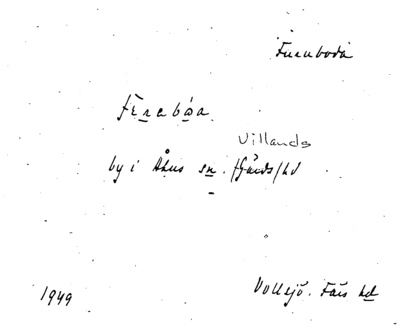 Furuboda
fërabøa
Villands
by i Åhus sn. /Gärds/ hd
1949 Vollsjö. Färs hd